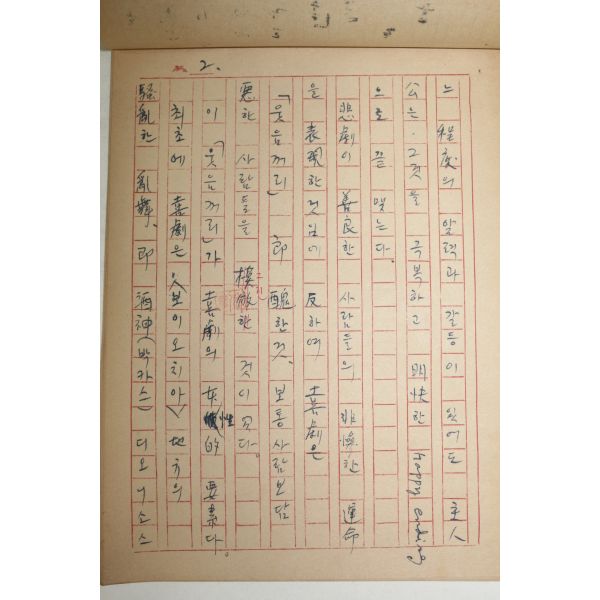 2.
느 程度의 알력과 갈등이 있어도 主人
公는·그것을 극복하고 明快한 happy ending
으로 끝 맺는다.
悲劇이 善良한 사람들의 非慘한 運命
을 表現한것임에 反하여 喜劇은
「웃음꺼리」 即 醜한것. 보통사람보담
悪한 사람들을 模倣한 것이었다.
이 「웃음꺼리」가 喜劇의 要素다。
최초에 喜劇은 <보이오치아> 地方의
騷亂한 亂舞、即 酒神(박카스) 디오니소스